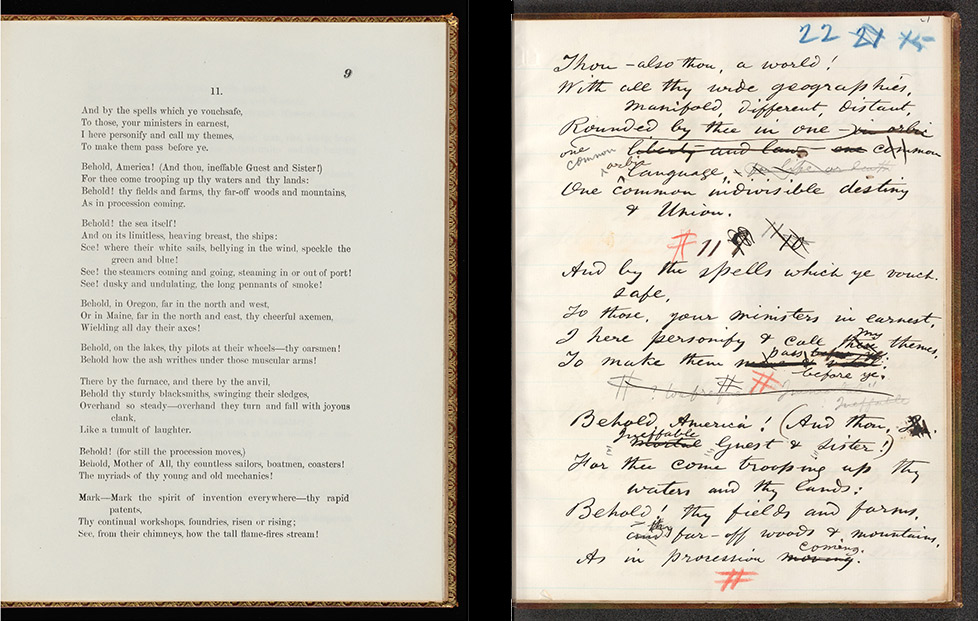 9
11.
And by the spells which ye vouchsafe,
To those, your ministers in earnest,
I here personify and call my themes,
To make them pass before ye.
Behold, America! (And thou, ineffable Guest and Sister!)
For thee come trooping up thy waters and thy lands:
Behold! thy fields and farms, thy far-off woods and mountains,
As in procession coming.
Behold! the sea itself!
And on its limitless, heaving breast, the ships:
See! where their white sails, bellying in the wind, speckle the
green and blue!
See! the steamers coming and going, steaming in or out of port!
See! dusky and undulating, the long pennants of smoke!
Behold, in Oregon, far in the north and west,
Or in Maine, far in the north and east, thy cheerful axemen,
Wielding all day their axes!
Behold, on the lakes, thy pilots at their wheels—thy oarsmen!
Behold how the ash writhes under those muscular arms!
There by the furnace, and there by the anvil,
Behold thy sturdy blacksmiths, swinging their sledges,
Overhand so steady—overhand they turn and fall with joyous
clank,
Like a tumult of laughter.
Behold! (for still the procession moves,)
Behold, Mother of All, thy countless sailors, boatmen, coasters!
The myriads of thy young and old mechanics!
Mark—Mark the spirit of invention everywhere—thy rapid
patents,
Thy continual workshops, foundries, risen or rising;
See, from their chimneys, how the tall flame-fires stream!
22 21 15
Thou – also thou, a world!
With all thy wide geographies,
manifold, different, distant,
Rounded by thee in one – in orbic
one liberty and law – one common
common orbic
language,
One common indivisible destiny
& Union.
# 11
And by the spells which ye vouch-
safe,
To those, your ministers in earnest,
I here personify & call my themes,
To make them pass
before ye.
# # #
Ineffable
Behold, America! (And thou,
Ineffable
mortal Guest & Sister!)
For thee come trooping up thy
waters and thy lands:
Behold! thy fields and farms,
thy
and far-off woods & mountains,
coming.
As in procession moving.
#